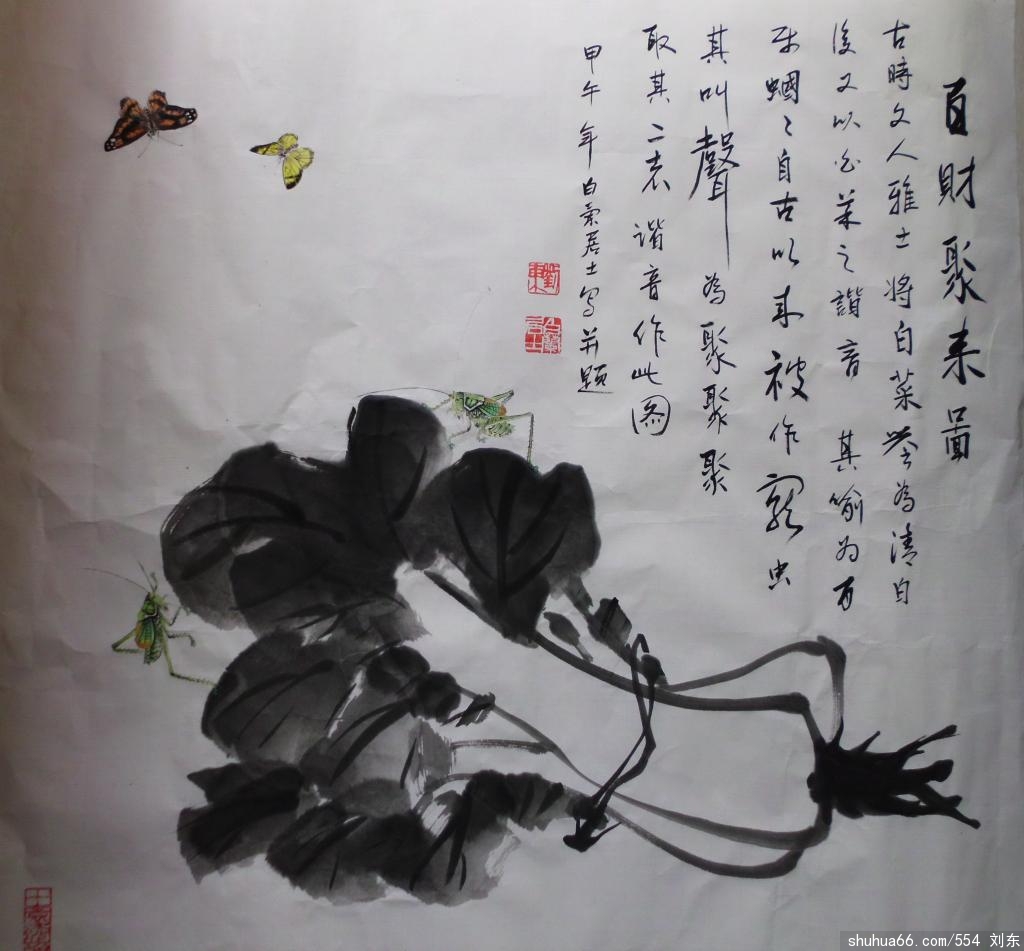 百財聚来圖
古時文人雅士将白菜誉為清白
後又以白菜之諧音其喻为百
财蝈〻自古以来被作寵虫
其叫聲為聚聚聚
取其二者谐音作此图
甲午年白菊居士写并题
shuhua66.com/554 刘东